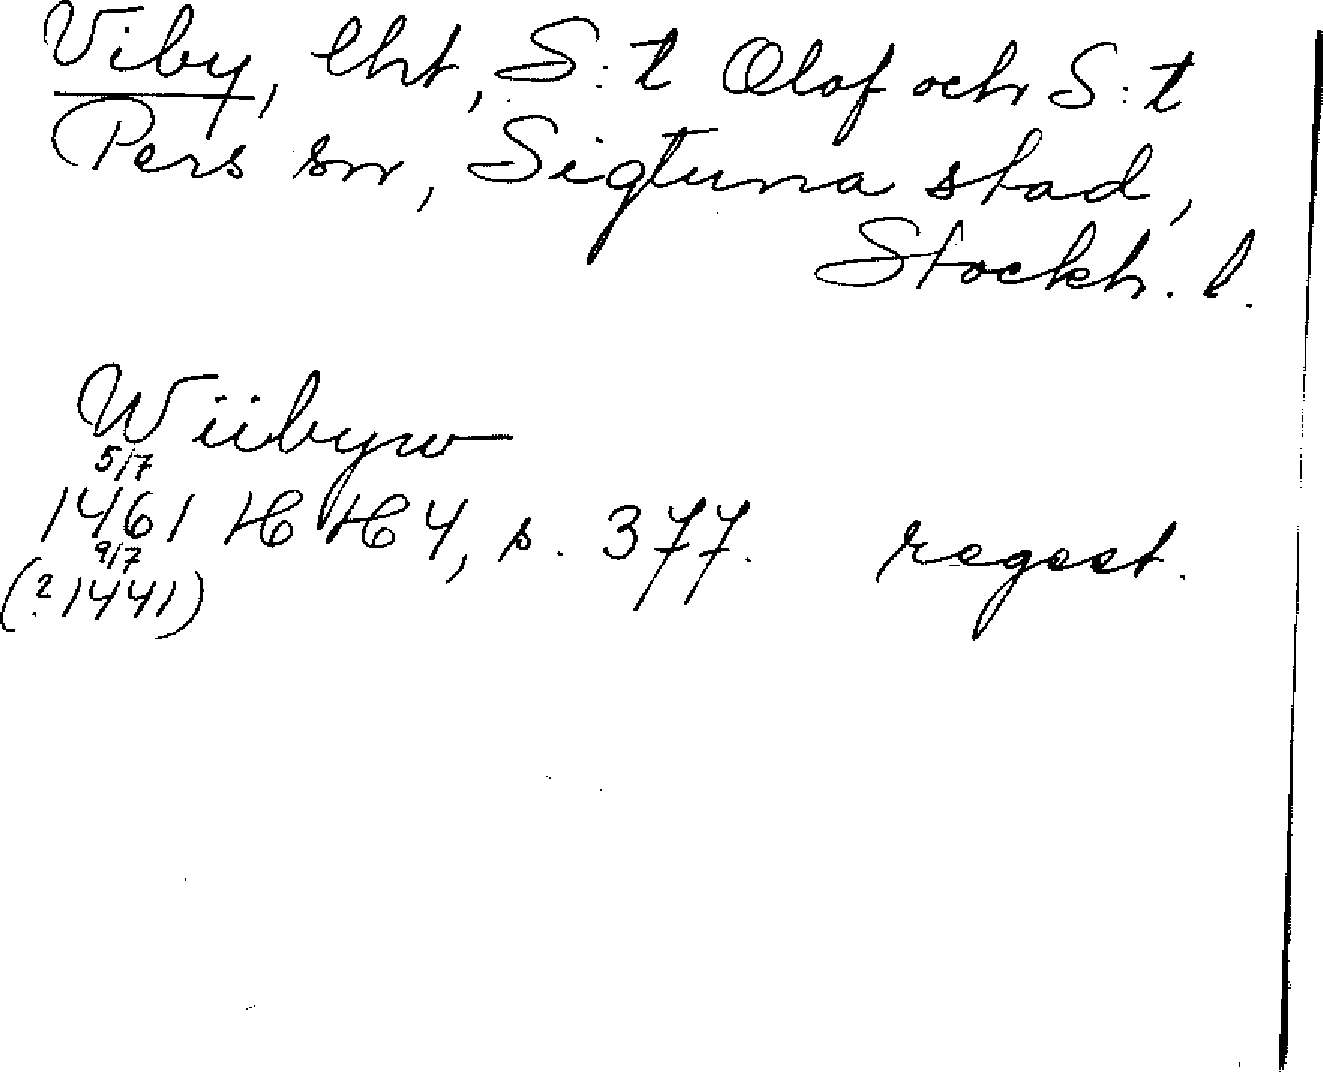 Viby, lht, S:t Olof och S:t
Pers sn, Sigtuna stad,
Stockh. l.
Wiibyw
5/7
1461 HH 4, s. 377. regest.
9/7
(? 1441)